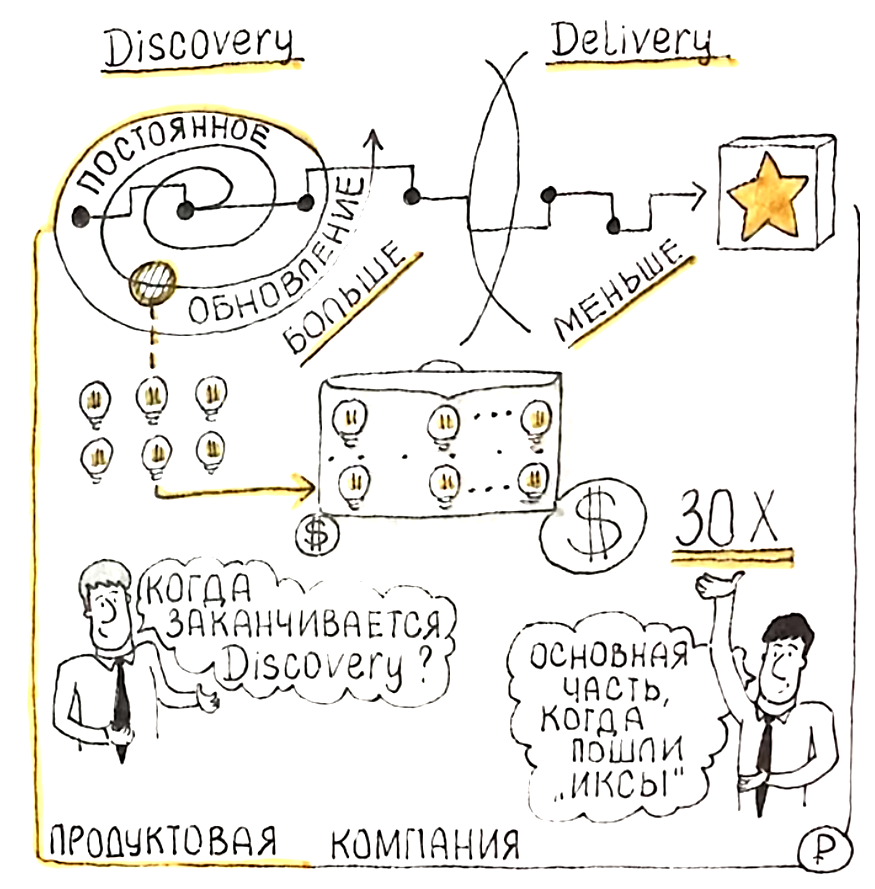 Discovery
Delivery
ПОСТОЯННОЕ
ОБНОВЛЕНИЕ
БОЛЬШЕ
МЕНЬШЕ
$
$
30 X
КОГДА
ЗАКАНЧИВАЕТСЯ
Discovery?
ОСНОВНАЯ
ЧАСТЬ,
КОГДА
ПОШЛИ
„ИКСЫ“
ПРОДУКТОВАЯ КОМПАНИЯ
₽